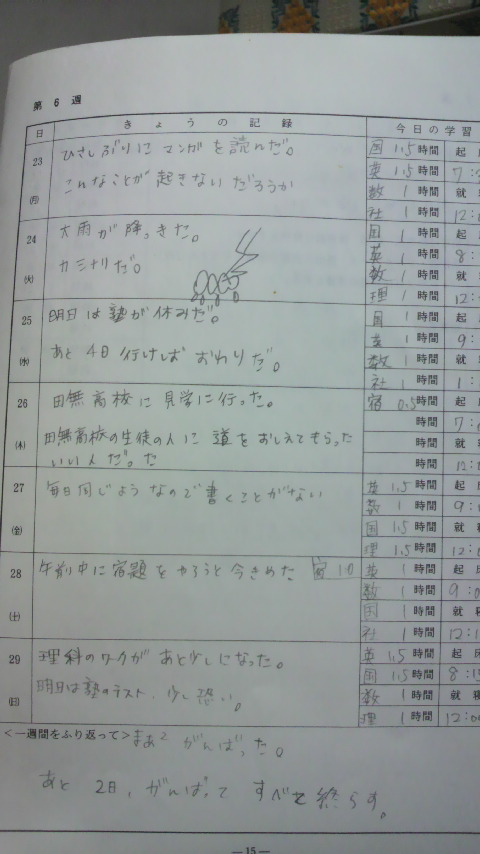 第 6 週
日 きょうの記録 今日の学習
23 ひさしぶりに マンガを読んだ。 国 1.5 時間 起
こんなことが 起きないだろうか 英 1.5 時間 7:
(月) 数 1 時間 就
社 1 時間 12:
24 大雨が降ってきた。 国 1 時間 起
カミナリだ。 英 1 時間 8:
(火) 数 1 時間 就
理 1 時間 12:
25 明日は塾が休みだ。 国 1 時間 起
英 1 時間 9:
あと4日行けば おわりだ。 数 1 時間 就
(水) 社 1 時間 1:
26 田無高校に見学に行った。 宿 0.5 時間 起
時間 7:
田無高校の生徒の人に 道をおしえてもらった 時間 就
(木) いい人だ。た 時間 12:
27 毎日同じようなので書くことがない 英 1.5 時間 起
数 1 時間 9:
国 1.5 時間 就
(金) 理 1.5 時間 12:
28 午前中に宿題をやろうと今きめた 英 1 時間 起
数 1 時間 9:
国 1 時間 就
(土) 社 1 時間 12:
29 理科のワークが あと少しになった。 英 1.5 時間 起床
明日は塾のテスト、少し恐い。 国 1.5 時間 8:
数 1 時間 就寝
(日) 理 1 時間 12:00
<一週間をふり返って> まあ2 がんばった。
あと 2日、がんばって すべて終らす。
— 15 —